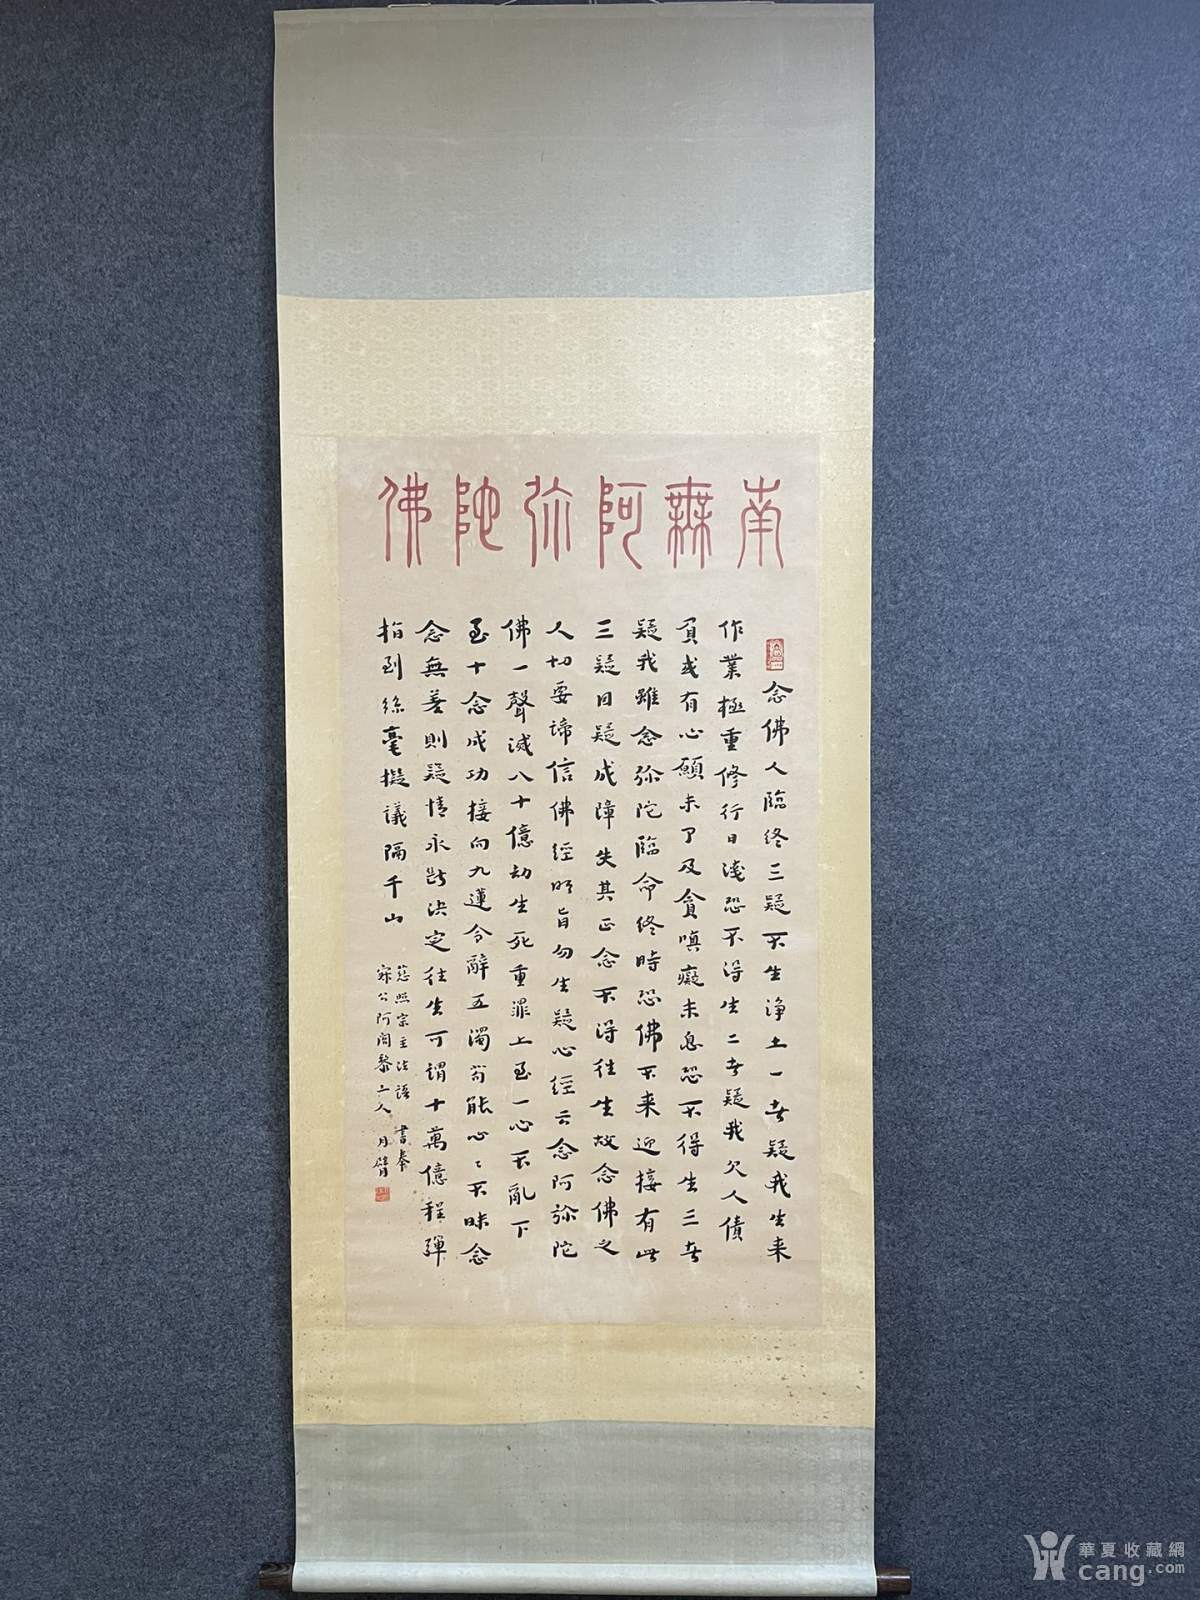 南無阿弥陀佛
念佛人臨終三疑不生淨土一者疑我生来
作業極重修行日淺恐不得生二者疑我欠人債
負或有心願未了及貪嗔癡未息恐不得生三者
疑我雖念弥陀臨命終時恐佛不来迎接有此
三疑因疑成障失其正念不得往生故念佛之
人切要諦信佛經明旨勿生疑心經云念阿弥陀
佛一聲滅八十億劫生死重罪上至一心不亂下
至十念成功接向九蓮令辭五濁苟能心々不昧念
念無差則疑情永斷決定往生可謂十萬億程彈
指到絲毫擬議隔千山
慈照宗主法語 書奉
寂公阿闍黎上人 月臂
華夏收藏網
cang.com